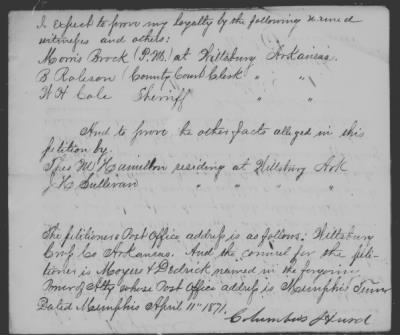 I expect to prove my loyalty by the following named
witnesses and others:
Morris Brock (P.M.) at Wittsburg Arkansas.
B Robeson (County Court Clerk " "
W H Cole Sherriff " "
And to prove the other facts alleged in this
petition by
Thos M Hamilton residing at Wittsburg Ark
J K Sullivan " " "
The petitioners Post Office address is as follows: Wittsburg
Cross Co Arkansas. And the counsel for the peti-
tioner is Moyers & Dedrick named in the foregoing
Power of Atty whose Post Office address is Memphis Tenn
Dated Memphis April 11th 1871.
Columbus Hurd